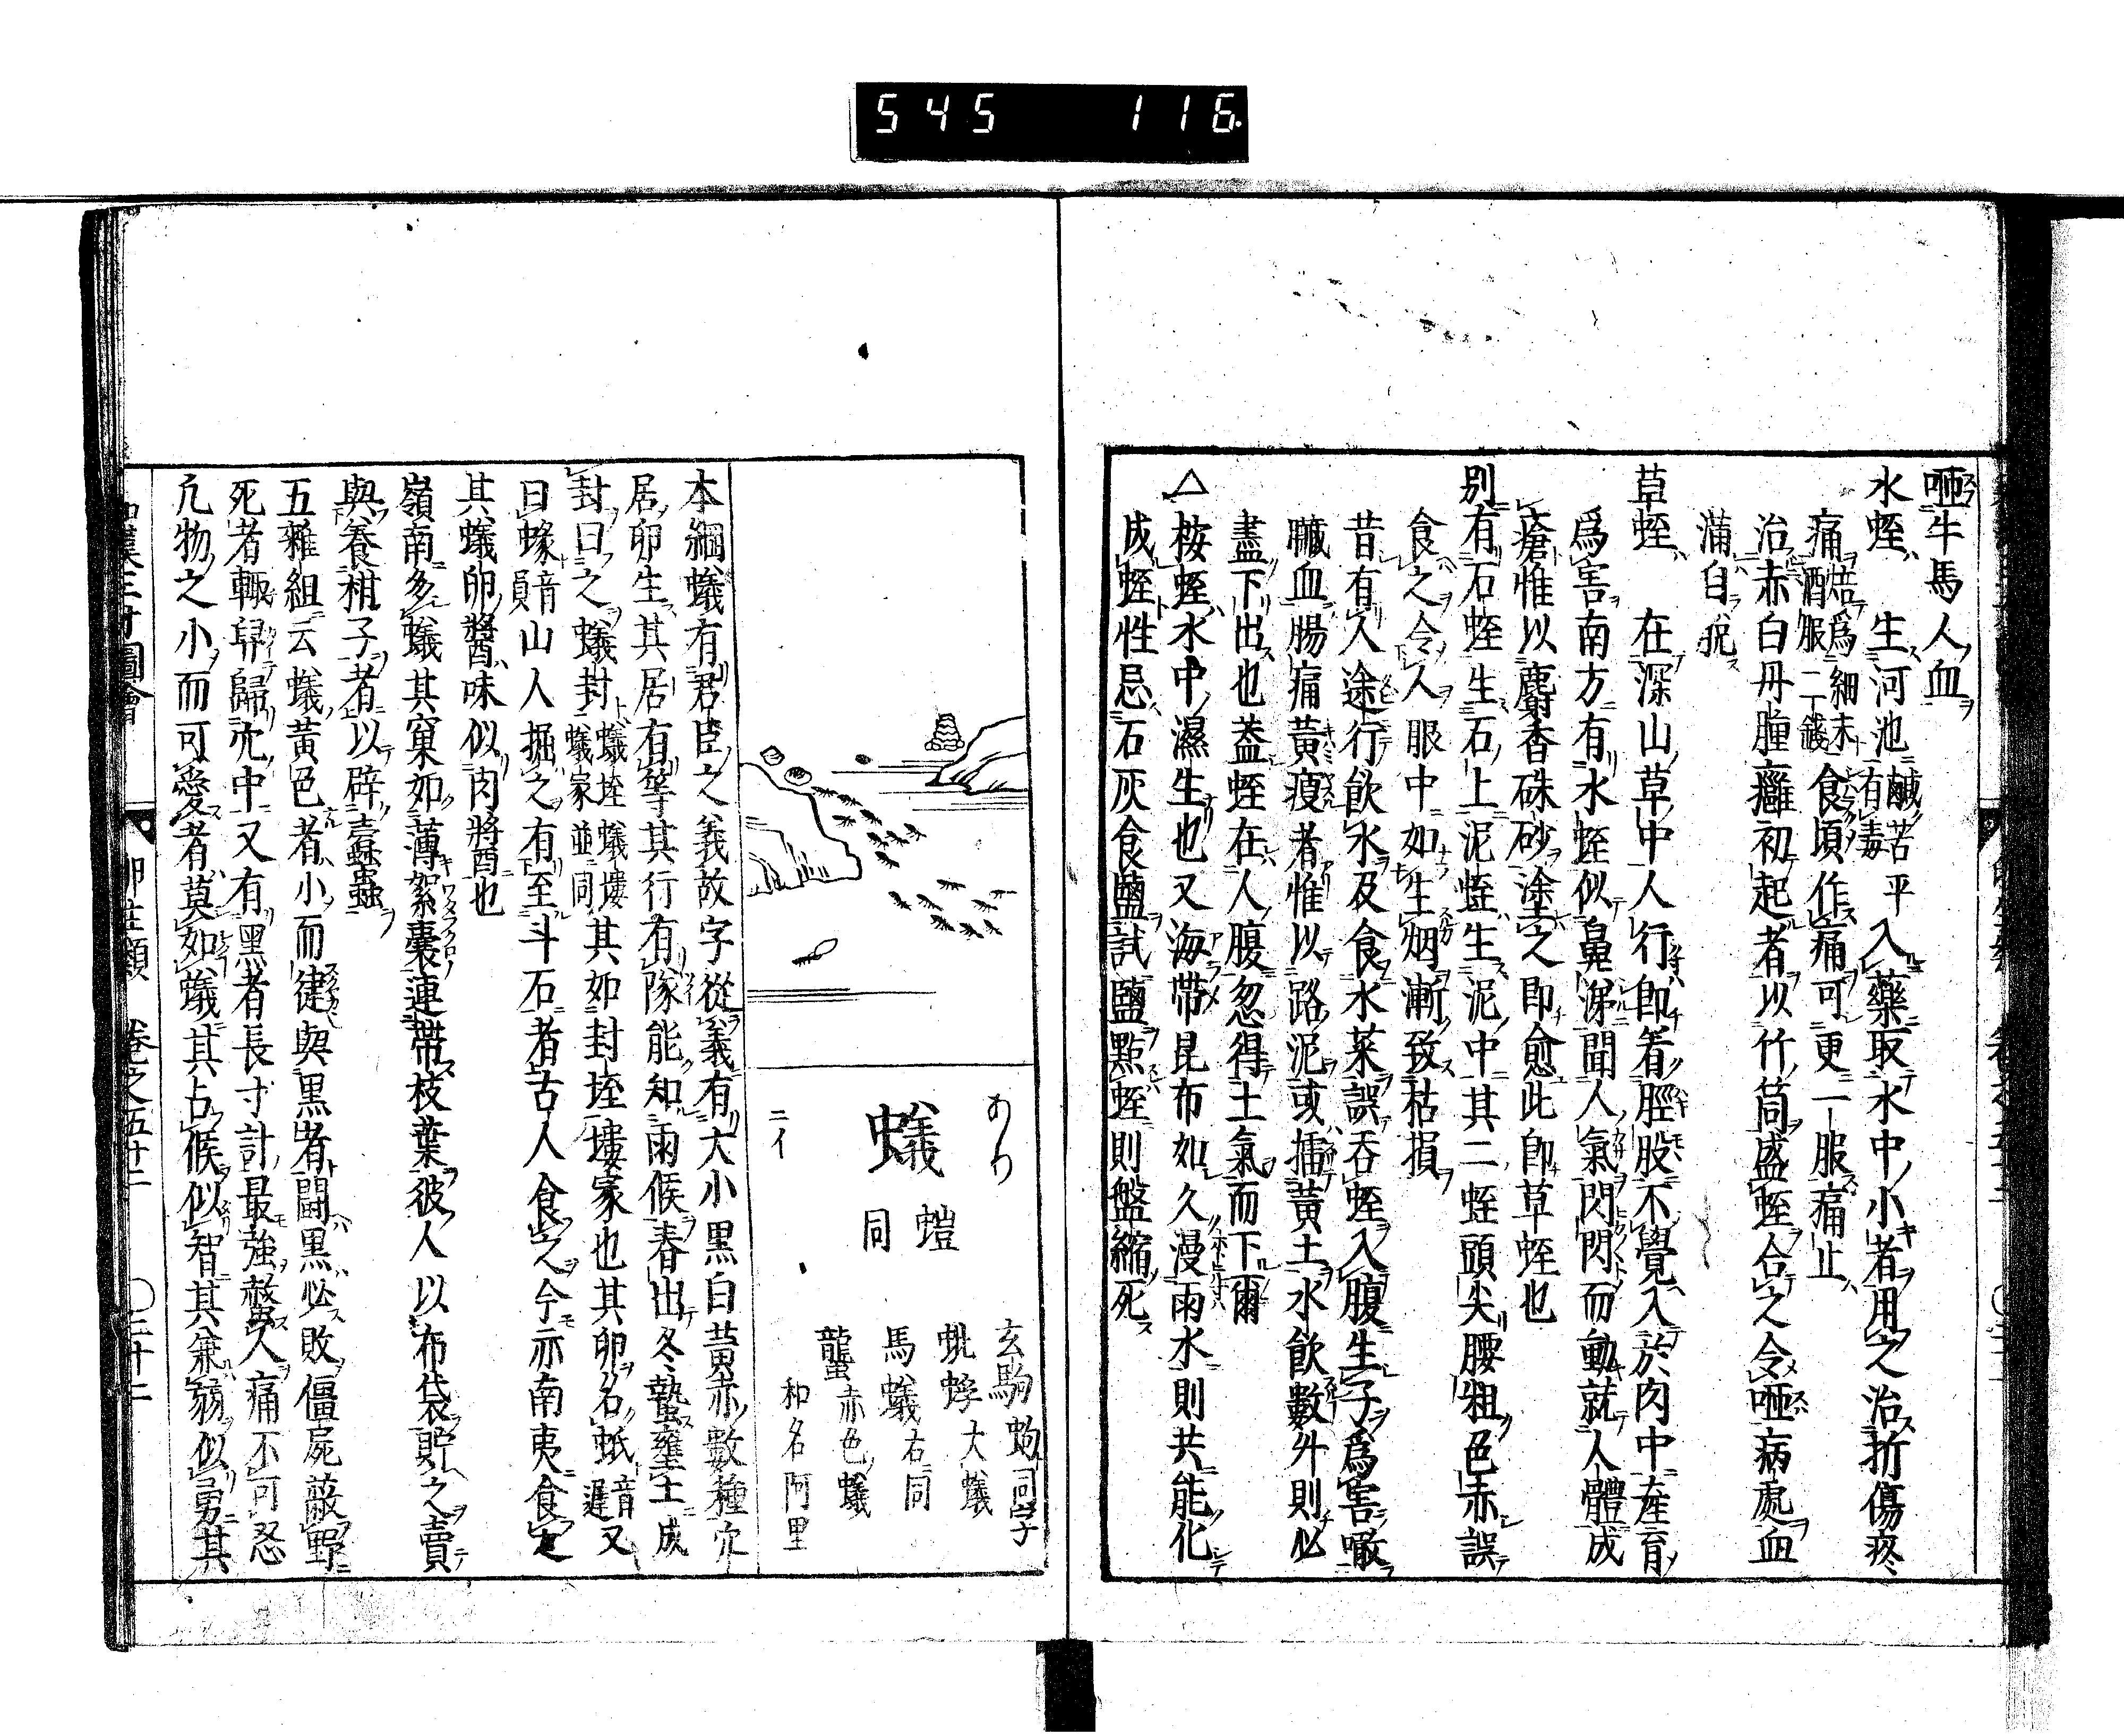 545 116
咂牛馬人血
水蛭 生河池 鹹苦平有毒 入藥取水中小者用之治折傷疼
痛 焙爲細末酒服二一錢 食頃作痛可更一服痛止
治赤白丹腫癰初起者以竹筒盛蛭合之令咂病處血
滿自脱
草蛭 在深山草中人行即着脛股不覺入於肉中產育
爲害南方有水蛭似鼻涕聞人氣閃閃而動就人體成
瘡惟以麝香硃砂塗之即愈此即草蛭也
別有石蛭生石上泥蛭生泥中其二蛭頭尖腰粗色赤誤
食之令人眼中如生烟漸致枯損
昔有人途行飲水及食水菜誤吞蛭入腹生子爲害噉
臟血腸痛黃瘦者惟以路泥或擂黃土水飲數升則必
盡下出也蓋蛭在人腹忽得土氣而下爾
△桉蛭水中濕生也又海帶昆布如久漫雨水則共能化
成蛭性忌石灰食鹽試鹽點蛭則盤縮死
あり
蟻
螘同
ニイ
玄駒 蚼同字
蚍蜉 大蟻
馬蟻 右同
蠪 赤色蟻
和名阿里
本綱蟻有君臣之義故字從義有大小黑白黃赤數種穴
居卵生其居有等其行有隊能知雨候春出冬蟄壅土成
封曰之蟻封 蟻垤蟻塿蟻冢並同 其如封垤塿冢也其卵名蚳 音遲 又
曰蝝 音員 山人掘之有至斗石者古人食之今亦南夷食之
其蟻卵醬味似肉將酉也
嶺南多蟻其窠如薄絮囊連帶枝葉彼人以布袋貯之賣
與養柑子者以辟蠹蟲
五雜組云蟻黃色者小而健與黑者鬪黑必敗僵屍蔽野
死者輙舁歸穴中又有黑者長寸計最強螫人痛不可忍
凢物之小而可愛者莫如蟻其占候似智其兼弱似勇其
和漢三才圖會 卵生類 卷之五十二 〇三十二